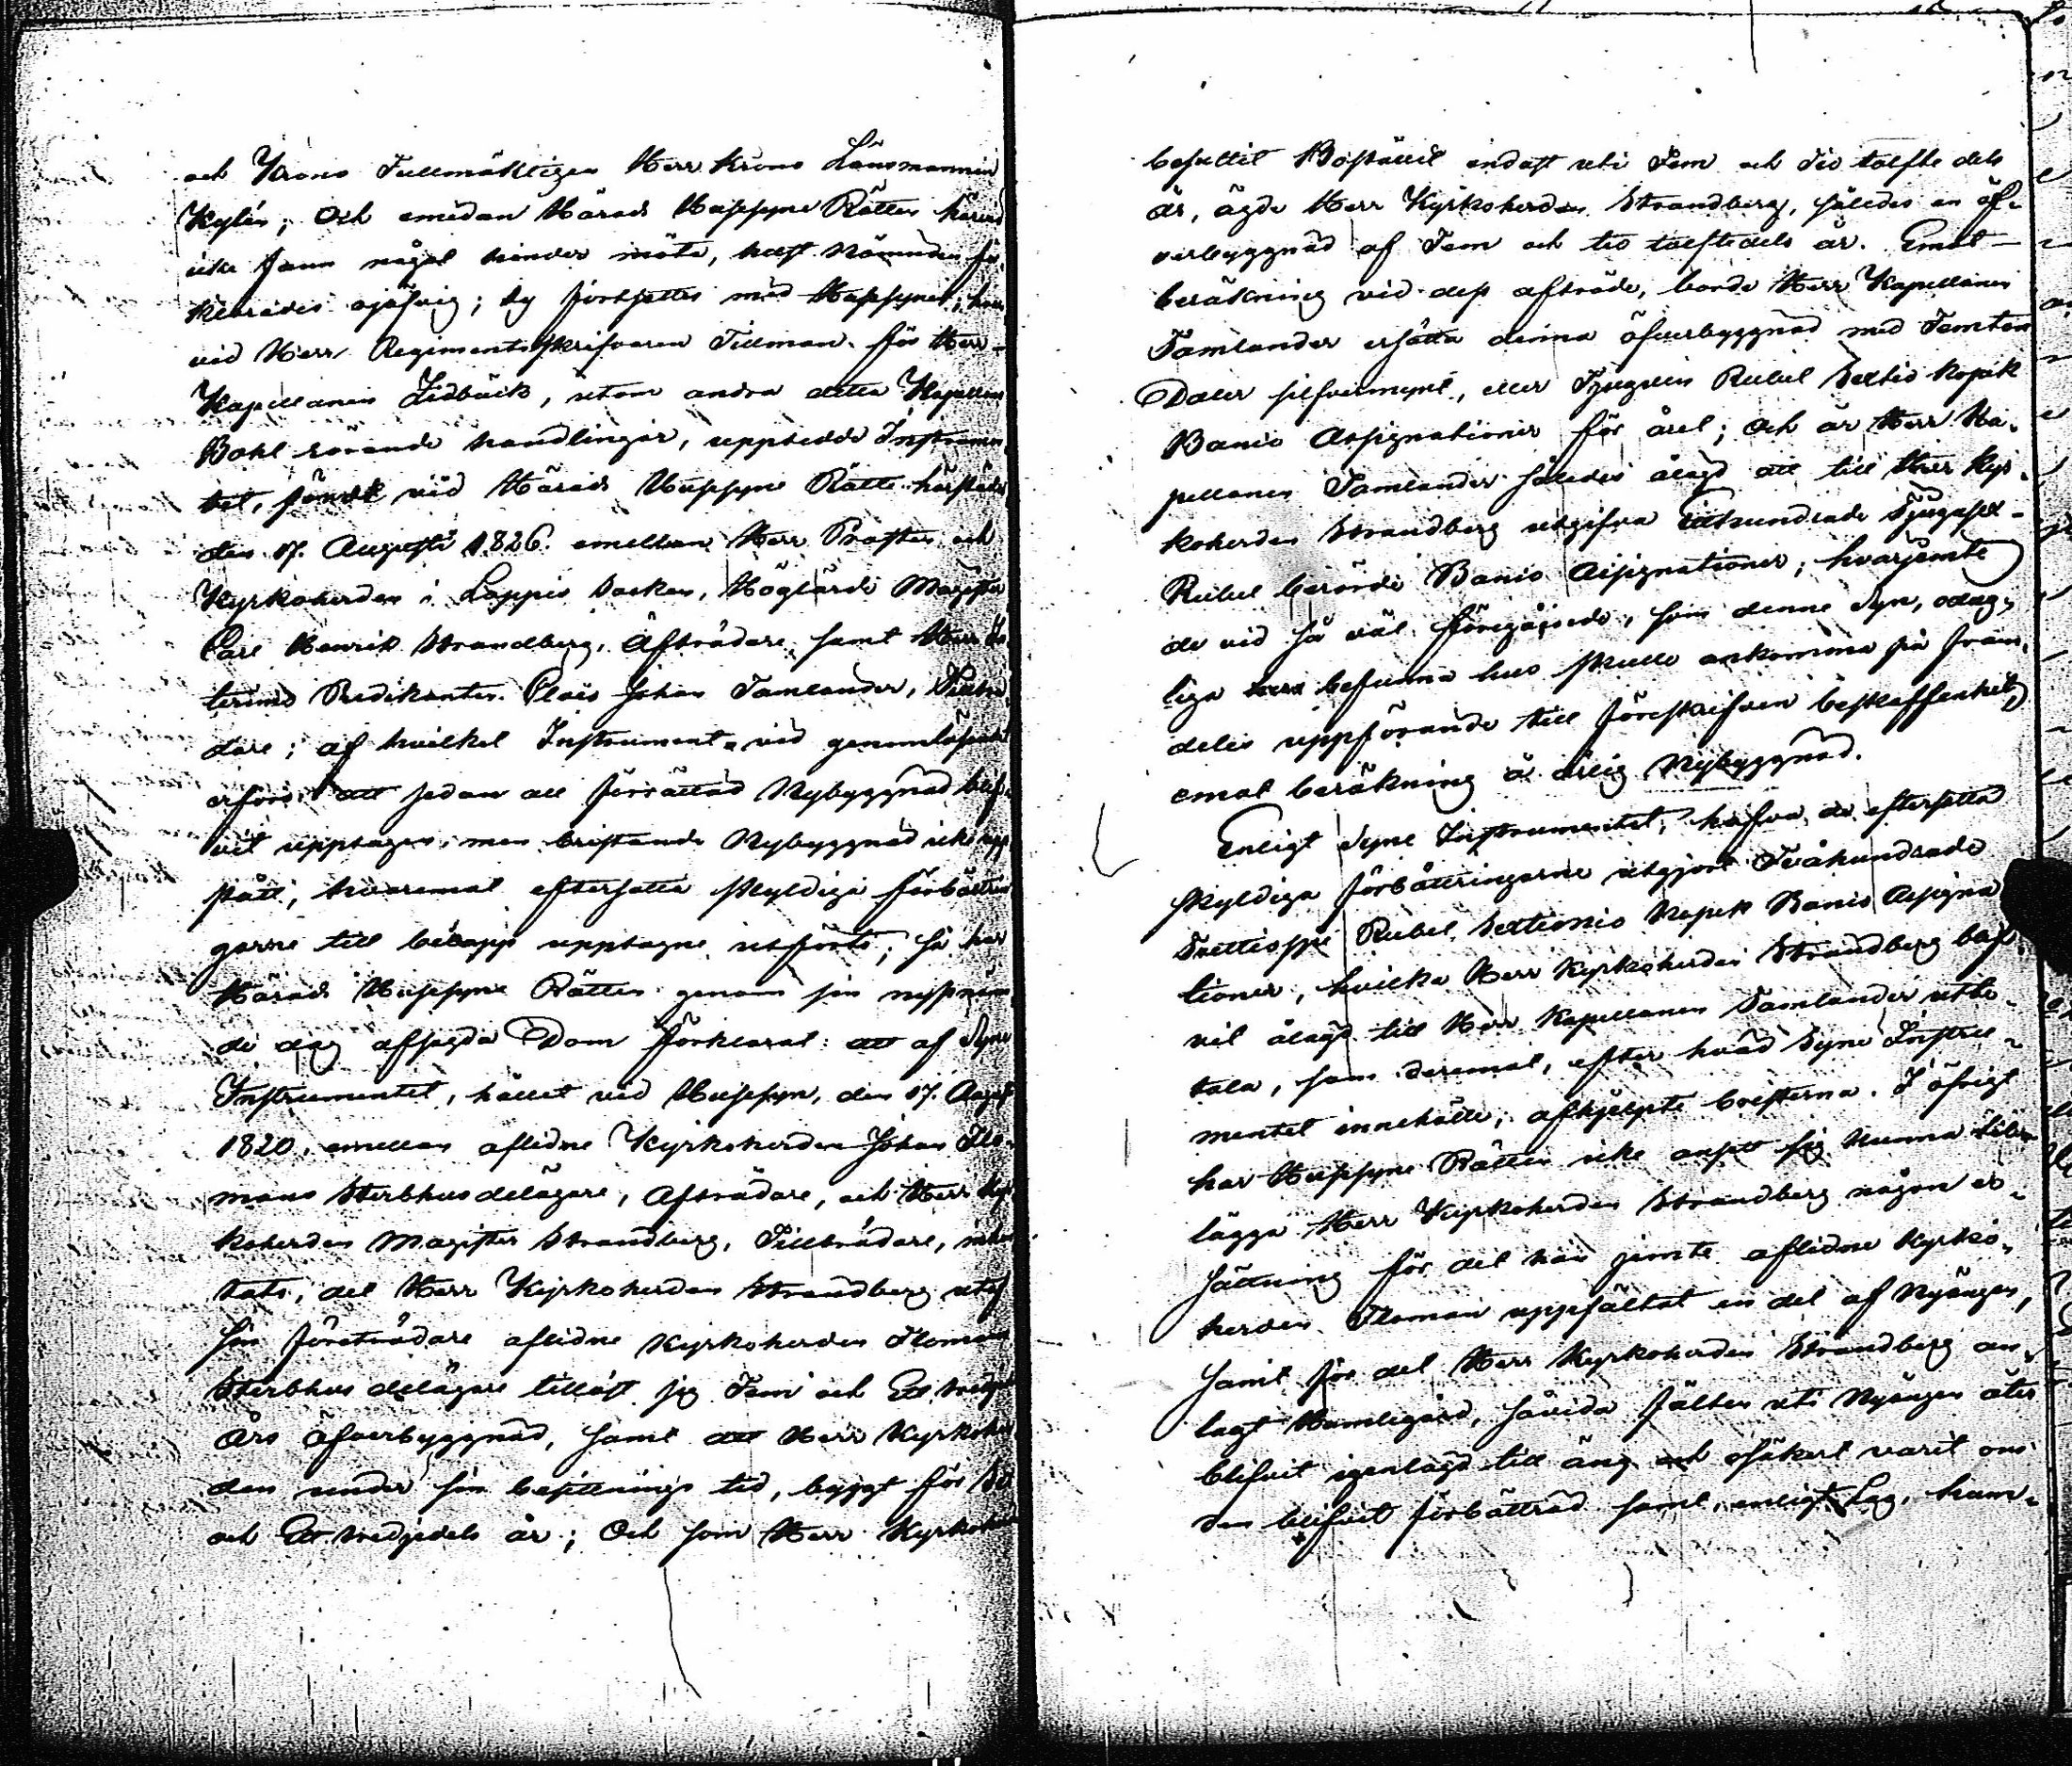 och Krono Fullmäktigen Herr Krono Länsmannen
Kylén; Och emedan Härads Huussyne Rätten härvid
icke fann något hinder möta, helst Nämnden för-
klarades ojäfvig; ty fortsattes med Huussynet; hvar
vid Herr Regimentsskrifvaren Tillman för Herr
Kapellanen Lidbäck, utom andra detta Kapellans
Bohl rörande handlingar, uppteedde Instrumen
tet, fördt vid Härads Huussyne Rätt härstädes
den 17. Augusti 1826. emellan Herr Prosten och
Kyrkoherden i Loppis Socken, Höglärde Magister
Carl Henrik Strandberg, Afträdare, samt Herr In-
terims Predikanten Claës Johan Tamlander, Tillträ
dare; af hvilket Instrument vid genomläsandet
erfors: att sedan all förrättad Nybyggnad blif-
vit upptagen, men bristande Nybyggnad icke upp
stått, hvaremot eftersatta skyldiga förbättrin
garne till belopp upptagne utförts; så har
Härads Huussyne Rätten genom sin nyssnäm
de dag afsagda Dom förklarat: att af Syne
Instrumentet, hållet vid Huussyn, den 17. August
1820, emellan aflidne Kyrkoherden Johan Flo-
mans Sterbhusdelägare, Afträdare, och Herr Kyr
koherden Magister Strandberg, Tillträdare, inhem
tats, det Herr Kyrkoherden Strandberg utaf
sin företrädare aflidne Kyrkoherden Flomans
Sterbhus delägare tillöst sig Fem och Ett tredjedels
Års Öfverbyggnad, samt att Herr Kyrkoher
den under sin besittnings tid, byggt för
och Ett tredjedels år; Och som Herr Kyrkoherden
besuttit Boställit endast uti Fem och Tio tolfte dels
år, ägde Herr Kyrkoherden Strandberg, således en öf-
verbyggnad af Fem och tio tolftedels år. Emot
beräkning vid dess afträde, borde Herr Kapellanen
Tamlander ersätta denna öfverbyggnad med Femton
Daler silfvermynt, eller Tjugutvå Rubel Sextio Kopek
Banco Assignationer för året; Och är Herr Ka-
pellanen Tamlander således ålagd att till Herr Kyr-
koherden Strandberg utgifva Etthundrade Tjugusex
Rubel berörde Banco Assignationer; hvarjemte
de vid så väl föregående, som denne Syn, odug-
liga befunna hus skulle ankomma på fram-
deles uppförande till föreskrifven beskaffenhet,
emot beräkning å årlig Nybyggnad.
Enligt Syne Instrumentet, hafva de eftersatta
skyldiga förbättringarne utgjort Tvåhundrade
Trettiosju Rubel Sextionio Kopek Banco Assigna
tioner, hvilka Herr Kyrkoherden Strandberg blif
vit ålagd till Herr Kapellanen Tamlander utbe-
tala, som deremot, efter hvad Syne Instru-
mentet innehåller, afhjelpte bristerna. I öfrigt
har Huussyne Rätten icke ansett sig kunna tiller
lägga Herr Kyrkoherden Strandberg någon er-
sättning för det han jemte aflidne Kyrko-
herden Floman uppfältat en del af Nyängen,
samt för det Herr Kyrkoherden Strandberg an-
lagt Humlegård, såvida fälten uti Nyängen åter
blifvit igenlagd till äng och osäkert varit om
den blifvit förbättrad samt, enligt Lag, hum-